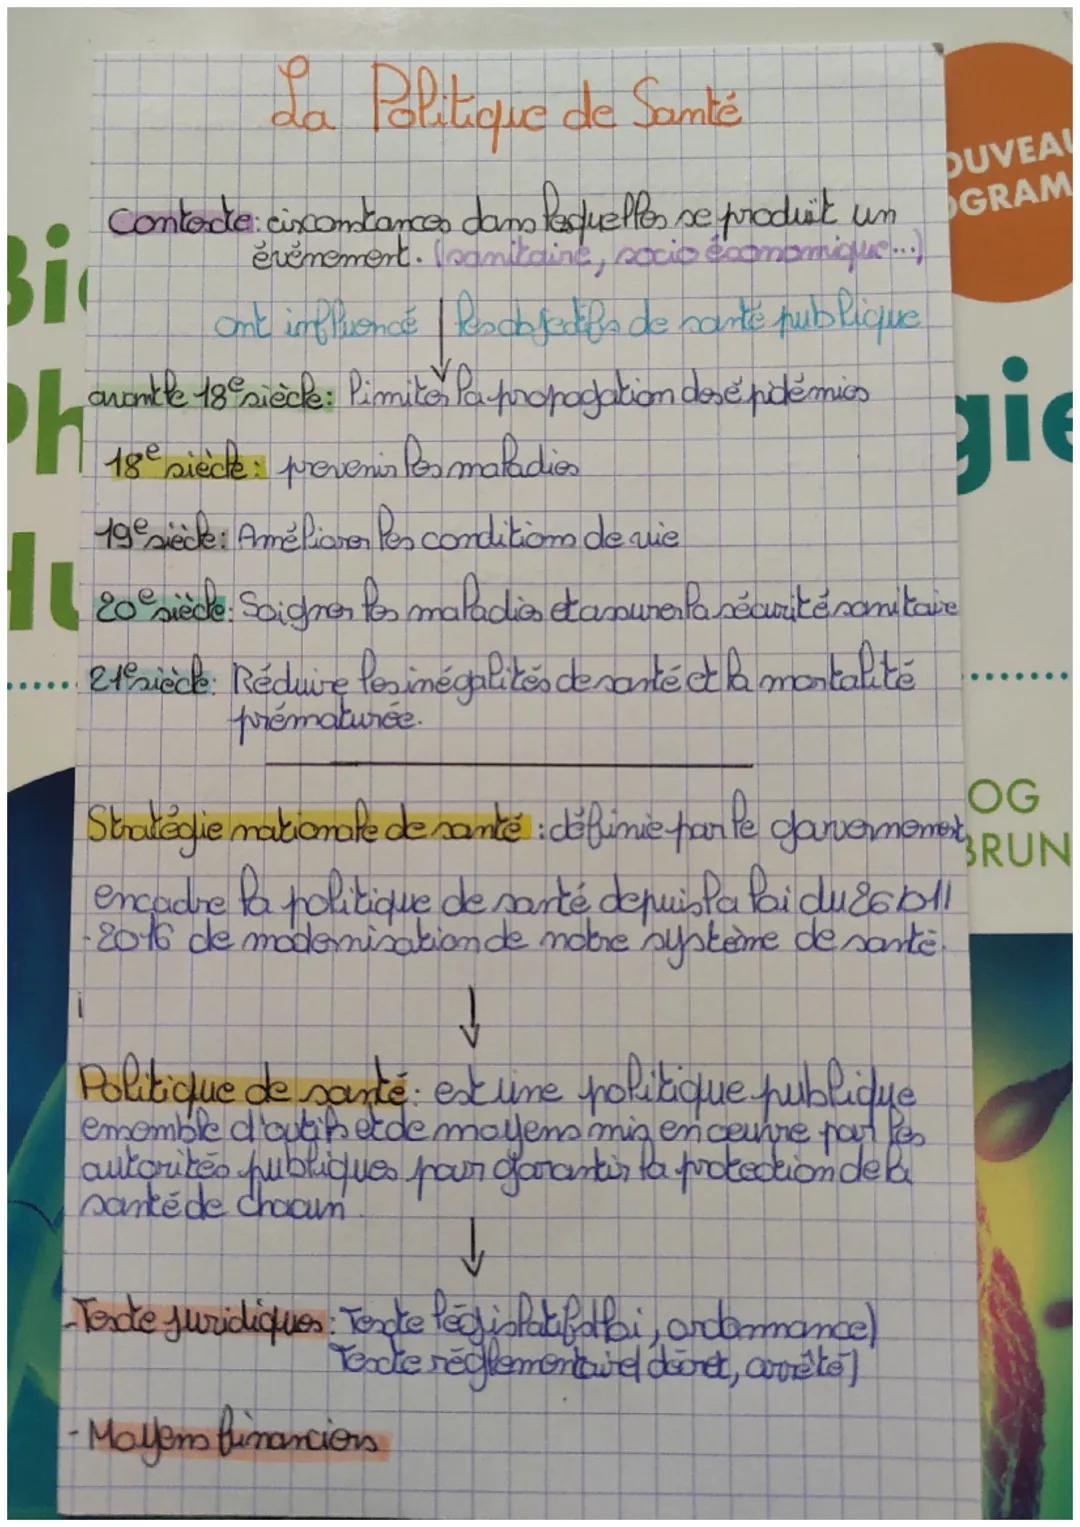 La Politique de Santé
OUVEAU
OGRAM
Contexte: circonstances dans lesquelles se produit un
événement. (sanitaire, socio économique...)
Bi
ont influencé les objectifs de santé publique
avant le 18e siècle: limiter la propagation des épidémies
Ph
gie
18e siècle: prevenir les maladies
19e siècle: Améliorer les conditions de vie
Hu
20e siècle: Soigner les maladies et assurer la sécurité sanitaire
21e siècle: Réduire les inégalités de santé et la mortalité
prématurée.
OG
BRUN
Stratégie nationale de santé: définie par le gouvernement
encadre la politique de santé depuis la loi du 26
-2016 de modernisation de notre système de santé.
Politique de santé: est une politique publique
ensemble d'outils et de moyens mis en oeuvre par les
autorités publiques pour garantir la protection de la
santé de chacun.
-Texte juridiques: Texte législatif (loi, ordonnance)
Texte réglementaire (décret, arrêté)
- Moyens financiers